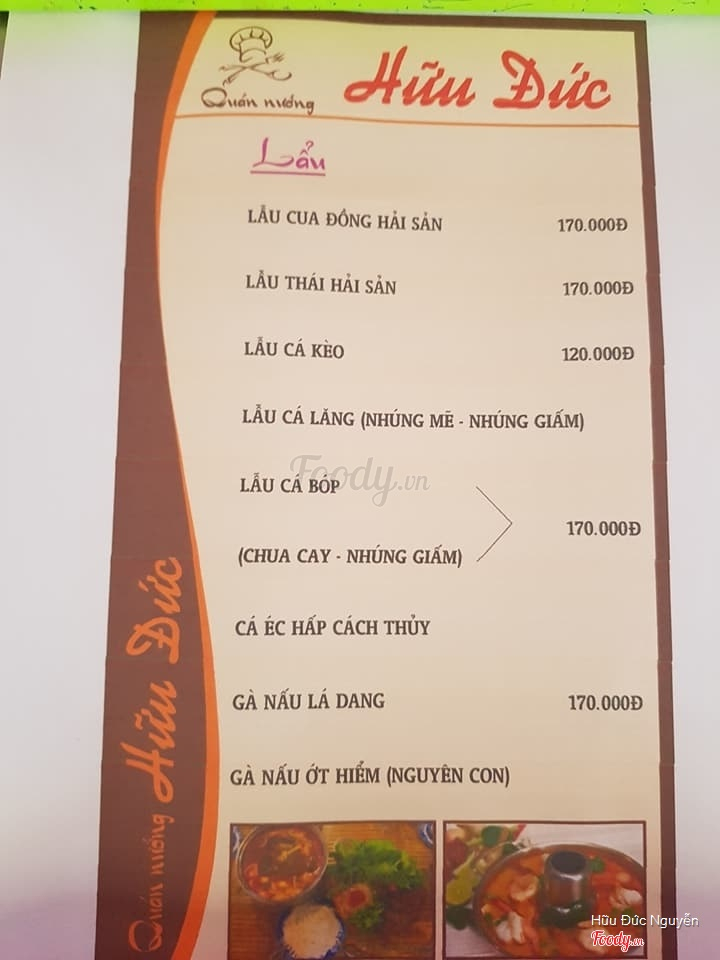 Quán nướng Hữu Đức
Lẩu
LẪU CUA ĐỒNG HẢI SẢN 170.000Đ
LẪU THÁI HẢI SẢN 170.000Đ
LẪU CÁ KÈO 120.000Đ
LẪU CÁ LĂNG (NHÚNG MẼ - NHÚNG GIẤM)
Foody.vn
LẪU CÁ BÓP
170.000Đ
(CHUA CAY - NHÚNG GIẤM)
CÁ ÉC HẤP CÁCH THỦY
GÀ NẤU LÁ DANG 170.000Đ
GÀ NẤU ỚT HIỂM (NGUYÊN CON)
Quán nướng Hữu Đức
Hữu Đức Nguyễn
Foody.vn